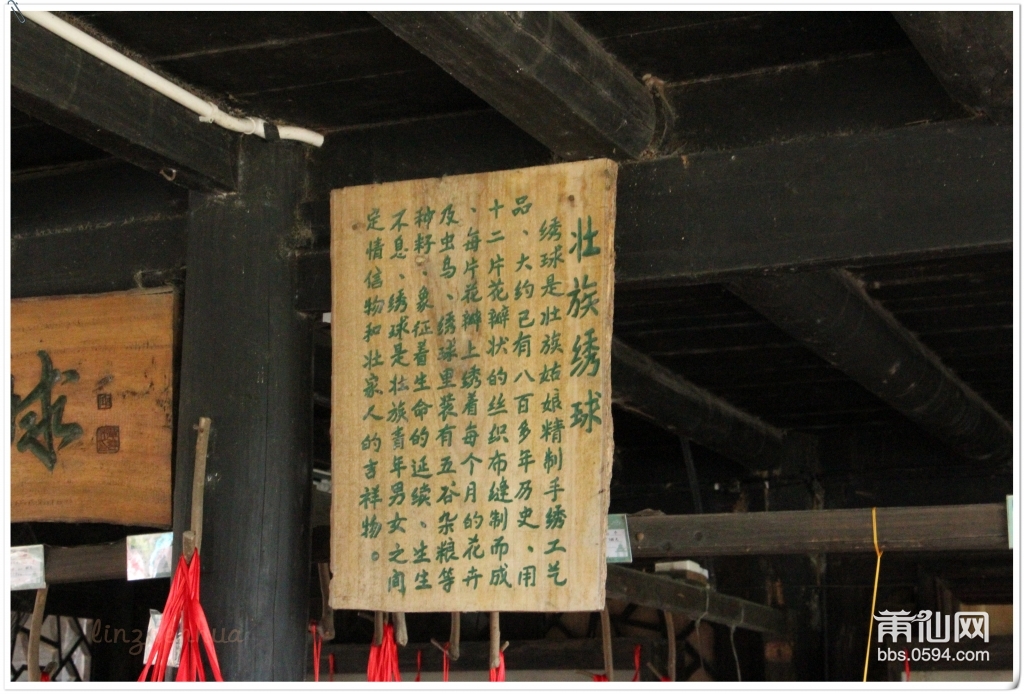 壮族绣球
绣球是壮族姑娘精制手绣工艺
品、大约已有八百多年历史、用
十二片花瓣状的丝织布缝制而成
、每片花瓣上绣着每个月的花卉
及虫鸟、绣球里装有五谷杂粮等
种籽、象征着生命的延续、生生
不息、绣球是壮族青年男女之间
定情信物和壮家人的吉祥物。
球
莆仙网
bbs.0594.com